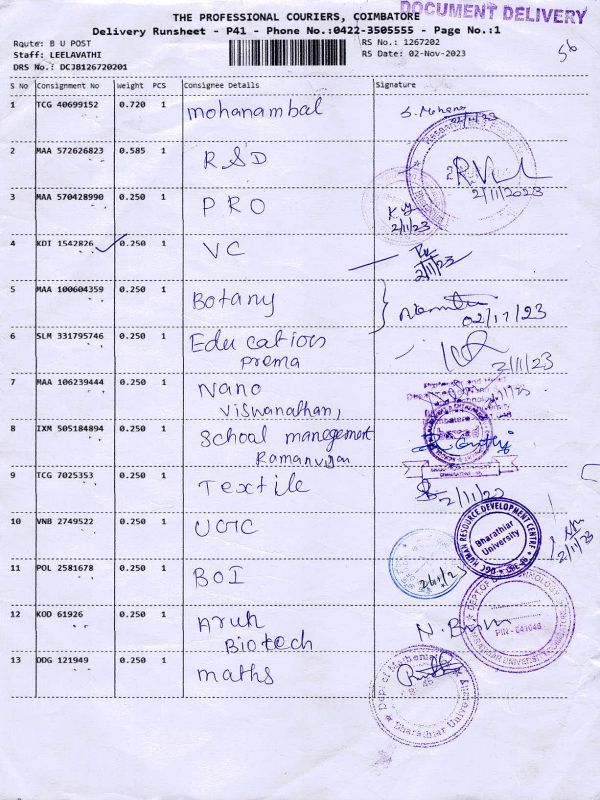 DOCUMENT DELIVERY
THE PROFESSIONAL COURIERS, COIMBATORE
Delivery Runsheet - P41 - Phone No.:0422-3505555 - Page No.:1
Route: B U POST
Staff: LEELAVATHI
DRS No.: DCJB126720201
RS No.: 1267202
RS Date: 02-Nov-2023
56
S No Consignment No Weight PCS Consignee Details Signature
1 TCG 40699152 0.720 1 mohanambal S. Mohana 02/11/23
2 MAA 572626823 0.585 1 RSD 2/11/2023
3 MAA 570428990 0.250 1 PRO 2/11/23
4 KDI 1542826 0.250 1 VC 2/11/23
5 MAA 100604359 0.250 1 Botany 02/11/23
6 SLM 331795746 0.250 1 Education
prema 2/11/23
7 MAA 106239444 0.250 1 Nano
Viswanathan,
8 IXM 505184894 0.250 1 School management
Ramanujan
9 TCG 7025353 0.250 1 Textile 2/11/23
10 VNB 2749522 0.250 1 UGC 2/11/23
HUMAN RESOURCE DEVELOPMENT CENTRE
Bharathiar
University
11 POL 2581678 0.250 1 BOI
12 KOD 61926 0.250 1 Arun
Biotech
PIN - 641046
13 DDG 121949 0.250 1 maths
Dept. of Mathematics
Bharathiar University